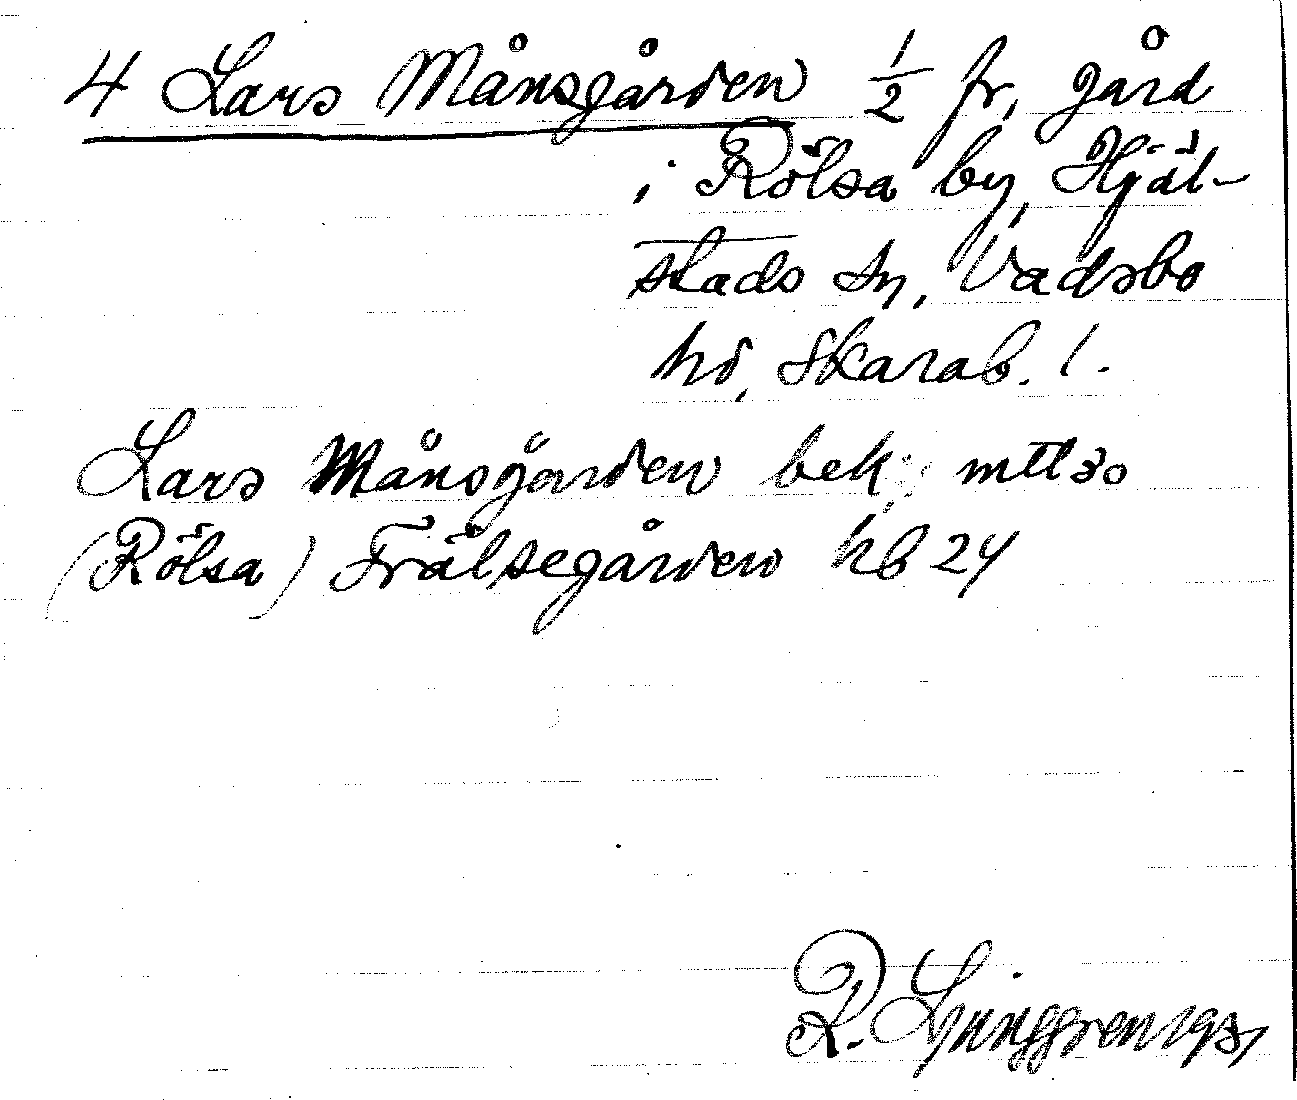 4 Lars Månsgården 1/2 fr. gård
i Rölsa by, Hjäl-
stads sn, Vadsbo
hd, Skarab. l.
Lars Månsgården bek. mtl 30
(Rölsa) Frälsegården kb 24
R. Ljunggren 1931